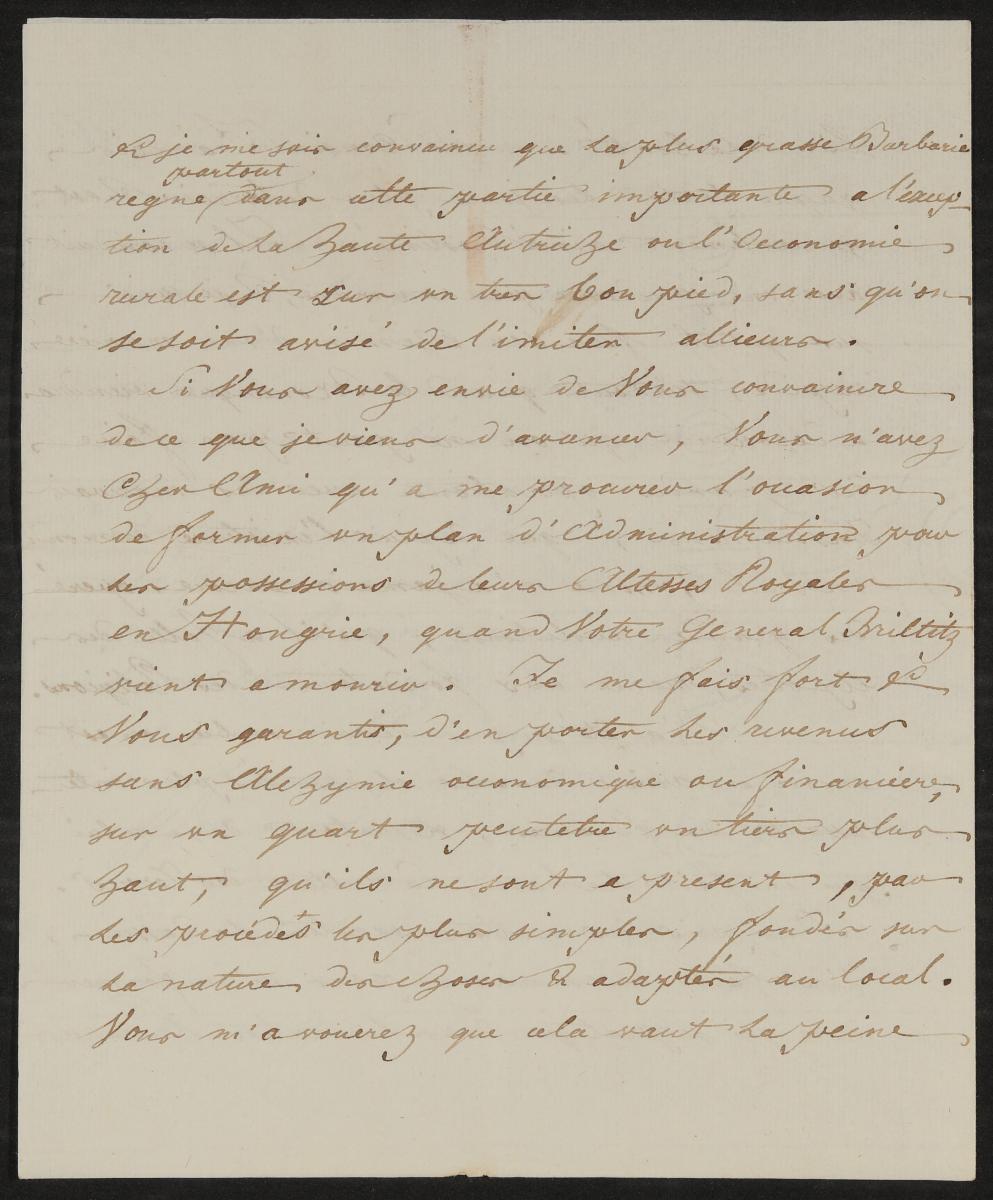 & je me suis convaincu que la plus grasse Barbarie
partout
regne dans cette partie importante a l'excep-
tion de la haute Autriche ou l'Oeconomie
rurale est sur un tres bon pied, sans qu'on
se soit avisé de l'imiter allieurs.
Si Vous avez envie de Vous convaincre
de ce que je viens d'avancer, Vous n'avez
Cher Ami qu'a me procurer l'occasion
de former un plan d'Administration pour
les possessions de leurs Altesses Royales
en Hongrie, quand Votre General Briltitz
vient a mourir. Je me fais fort &
Vous garantis, d'en porter les revenus
sans Alchymie oeconomique ou financiere,
sur un quart peutetre un tiers plus
haut, qu'ils ne sont a present, par
les procédés les plus simples, fondés sur
la nature des choses & adaptés au local.
Vous m'avouerez que cela vaut la peine